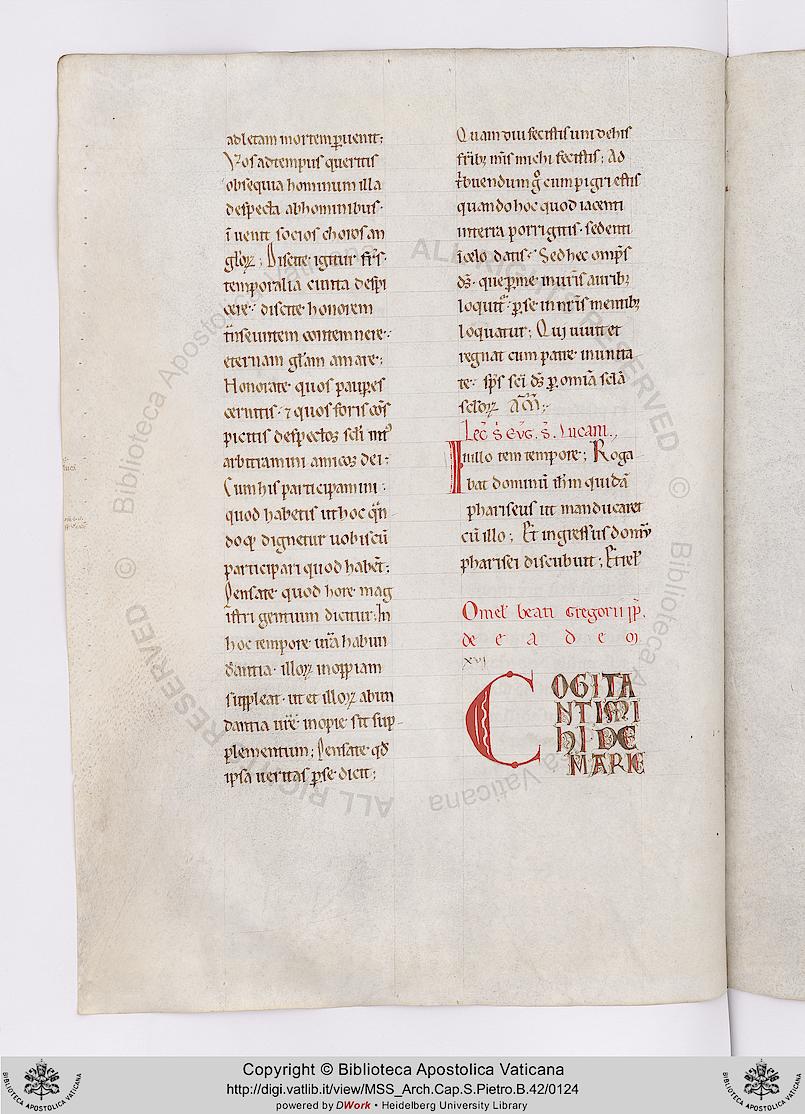 ad letam mortem ꝑuenit;
Vos ad tempus queritis
obsequia hominum illa
despecta ab hominibus·
īuenit socios choros an
gl̓oꝝ; Discite igitur fr̄s·
temporalia cuncta despi
cere·: discite honorem
t̄nseuntem contemnere·:
eternam gl̓am amare;
Honorate quos pauꝑes
cernitis· ⁊ quos foris cōs
picitis despectos sc̄li int᷒
arbitramini amicos dei;
Cum his participamini·:
quod habetis ut hoc qn̄
doqꝫ dignetur uobiscū
participari quod habet;
Pensate quod hore mag
istri gentium dicitur; In
hoc tempore ur̄a habun
dantia· illoꝝ inopiam
suppleat· ut et illoꝝ abun
dantia ur̄e inopie sit sup
plementum; Pensate qd̓
ipsa ueritas ꝑ se dicit;
Quamdiu fecistis uni de his
fr̄ibꝫ m̄s michi fecistis; Ad
t̓buendum gͦ cur pigri estis
quando hoc quod iacenti
in terra porrigitis· sedenti
ī celo datis·: Sed hec omp̄s
dꝰ· que ꝑ me in ur̄is auribꝫ
loquit᷑· ꝑ se in ur̄is mentibꝫ
loquatur; Qui uiuit et
regnat cum patre in unita
te· sp̄s sc̄i dꝰ ꝑ omīa sc̄la
sc̄loꝝ am̄;
Lec̄ s̄ euḡ. s̄. lucam.,
In illo tempore; Roga
bat dominū ih̄m quidā
phariseus ut manducaret
cū illo; Et ingressus domū
pharisei discubuit; Et rel̓
Omel̓ beati Gregorii pp̄.
de eadem
xvi
COGITA
NTI MI
HI DE
MARIE
Copyright © Biblioteca Apostolica Vaticana
http://digi.vatlib.it/view/MSS_Arch.Cap.S.Pietro.B.42/0124
powered by DWork • Heidelberg University Library